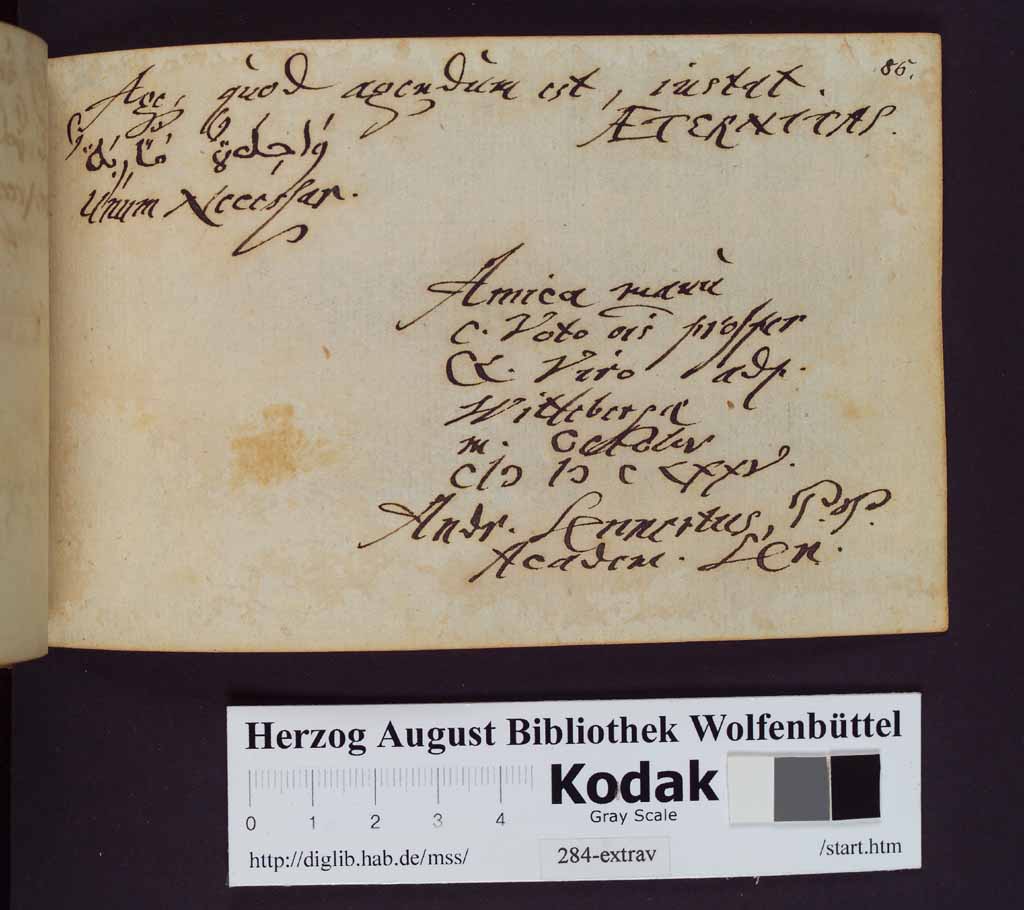 86.
Age, quod agendum est, instat.
ÆTERNITAS.
واحدة
Unum Necessar.
Amica manu
c. Voto ois prosper
Cl. Viro adp.
Wittebergæ
m. Octobr
CIↃ IↃ C LXXV.
Andr. Sennertus, P.P.
Academ. Sen.
Herzog August Bibliothek Wolfenbüttel
Kodak
Gray Scale
0 1 2 3 4
http://diglib.hab.de/mss/
284-extrav
/start.htm